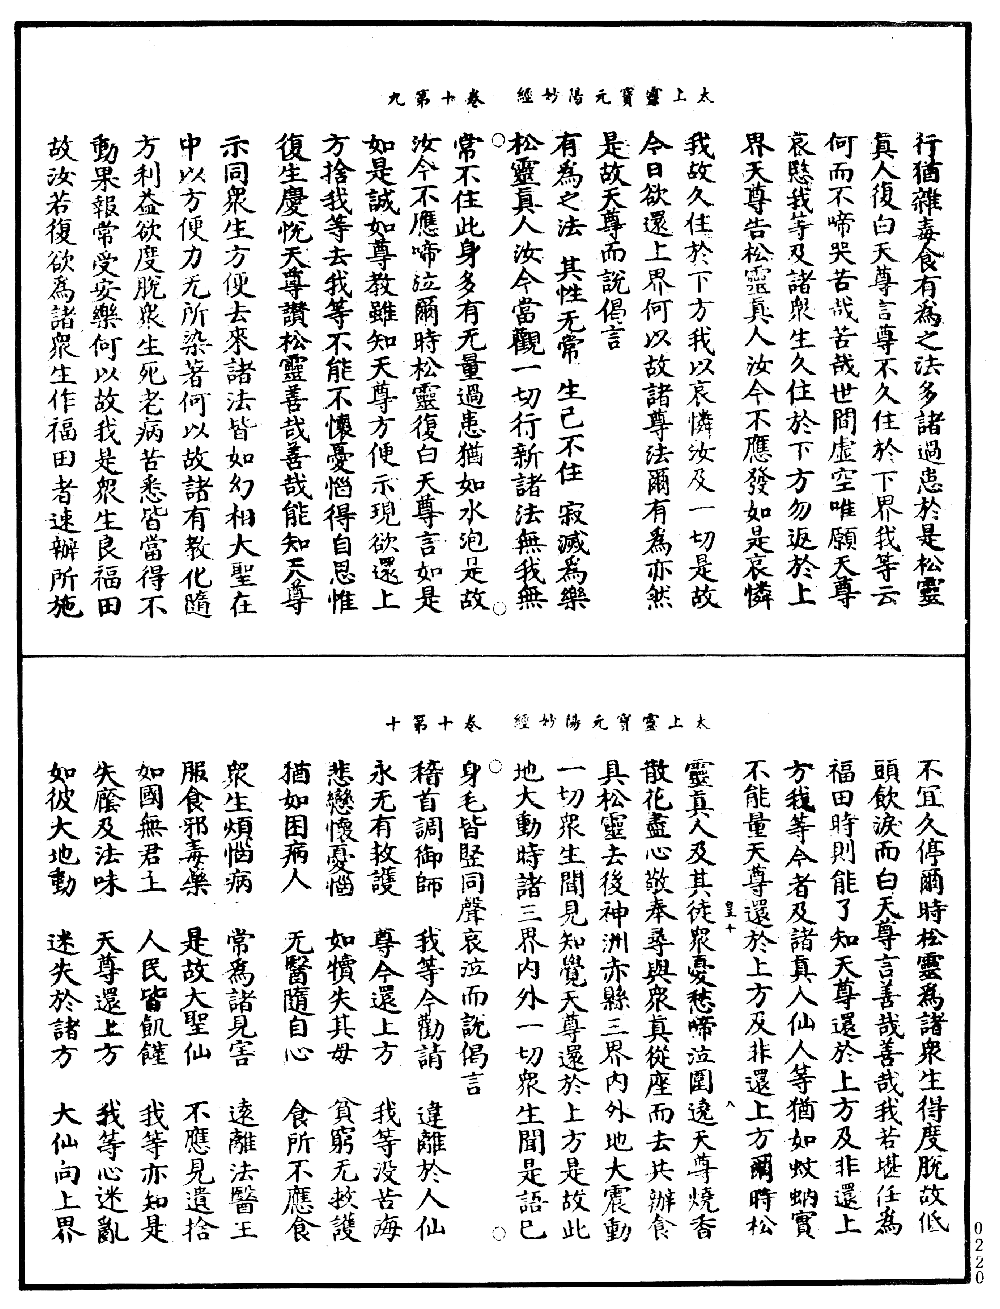 太上靈寶元陽妙經　卷十第九
行猶雜毒食有為之法多諸過患於是松靈
真人復白天尊言尊不久住於下界我等云
何而不啼哭苦哉苦哉世間虛空唯願天尊
哀愍我等及諸衆生久住於下方勿返於上
界天尊告松靈真人汝今不應發如是哀憐
我故久住於下方我以哀憐汝及一切是故
今日欲還上界何以故諸尊法爾有為亦然
是故天尊而說偈言
有為之法　其性无常　生已不住　寂滅為樂
松靈真人汝今當觀一切行新諸法無我無
常不住此身多有无量過患猶如水泡是故
汝今不應啼泣爾時松靈復白天尊言如是
如是誠如尊教雖知天尊方便示現欲還上
方捨我等去我等不能不懷憂惱得自思惟
復生慶悅天尊讚松靈善哉善哉能知天尊
示同衆生方便去來諸法皆如幻相大聖在
中以方便力无所染著何以故諸有教化隨
方利益欲度脫衆生死老病苦悉皆當得不
動果報常受安樂何以故我是衆生良福田
故汝若復欲為諸衆生作福田者速辦所施
太上靈寶元陽妙經　卷十第十
不宜久停爾時松靈為諸衆生得度脫故低
頭飲淚而白天尊言善哉善哉我若堪任為
福田時則能了知天尊還於上方及非還上
方我等今者及諸真人仙人等猶如蚊蚋實
不能量天尊還於上方及非還上方爾時松
皇十
靈真人及其徒衆憂愁啼泣圍遶天尊燒香
散花盡心敬奉尋與衆真從座而去共辦食
具松靈去後神洲赤縣三界內外地大震動
一切衆生聞見知覺天尊還於上方是故此
地大動時諸三界內外一切衆生聞是語已
身毛皆豎同聲哀泣而說偈言
稽首調御師　我等今勸請　違離於人仙
永无有救護　尊今還上方　我等没苦海
悲戀懷憂惱　如犢失其母　貧窮无救護
猶如困病人　无醫隨自心　食所不應食
衆生煩惱病　常為諸見害　遠離法醫王
服食邪毒藥　是故大聖仙　不應見遺捨
如國無君主　人民皆飢饉　我等亦如是
失廕及法味　天尊還上方　我等心迷亂
如彼大地動　迷失於諸方　大仙向上界
0220